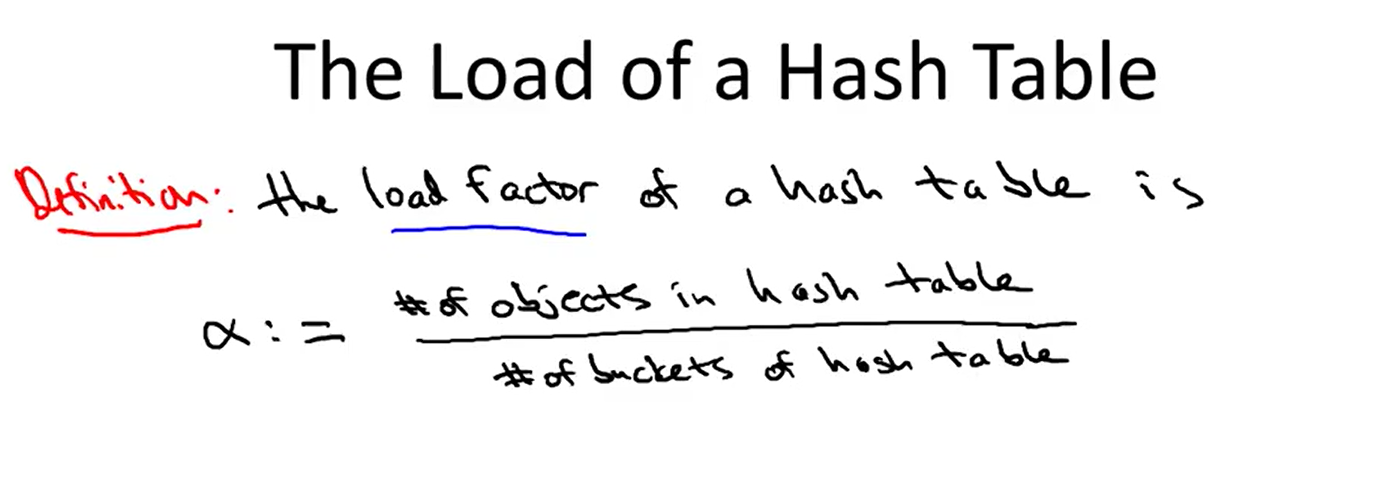 The Load of a Hash Table
Definition: the load factor of a hash table is
α := # of objects in hash table
# of buckets of hash table